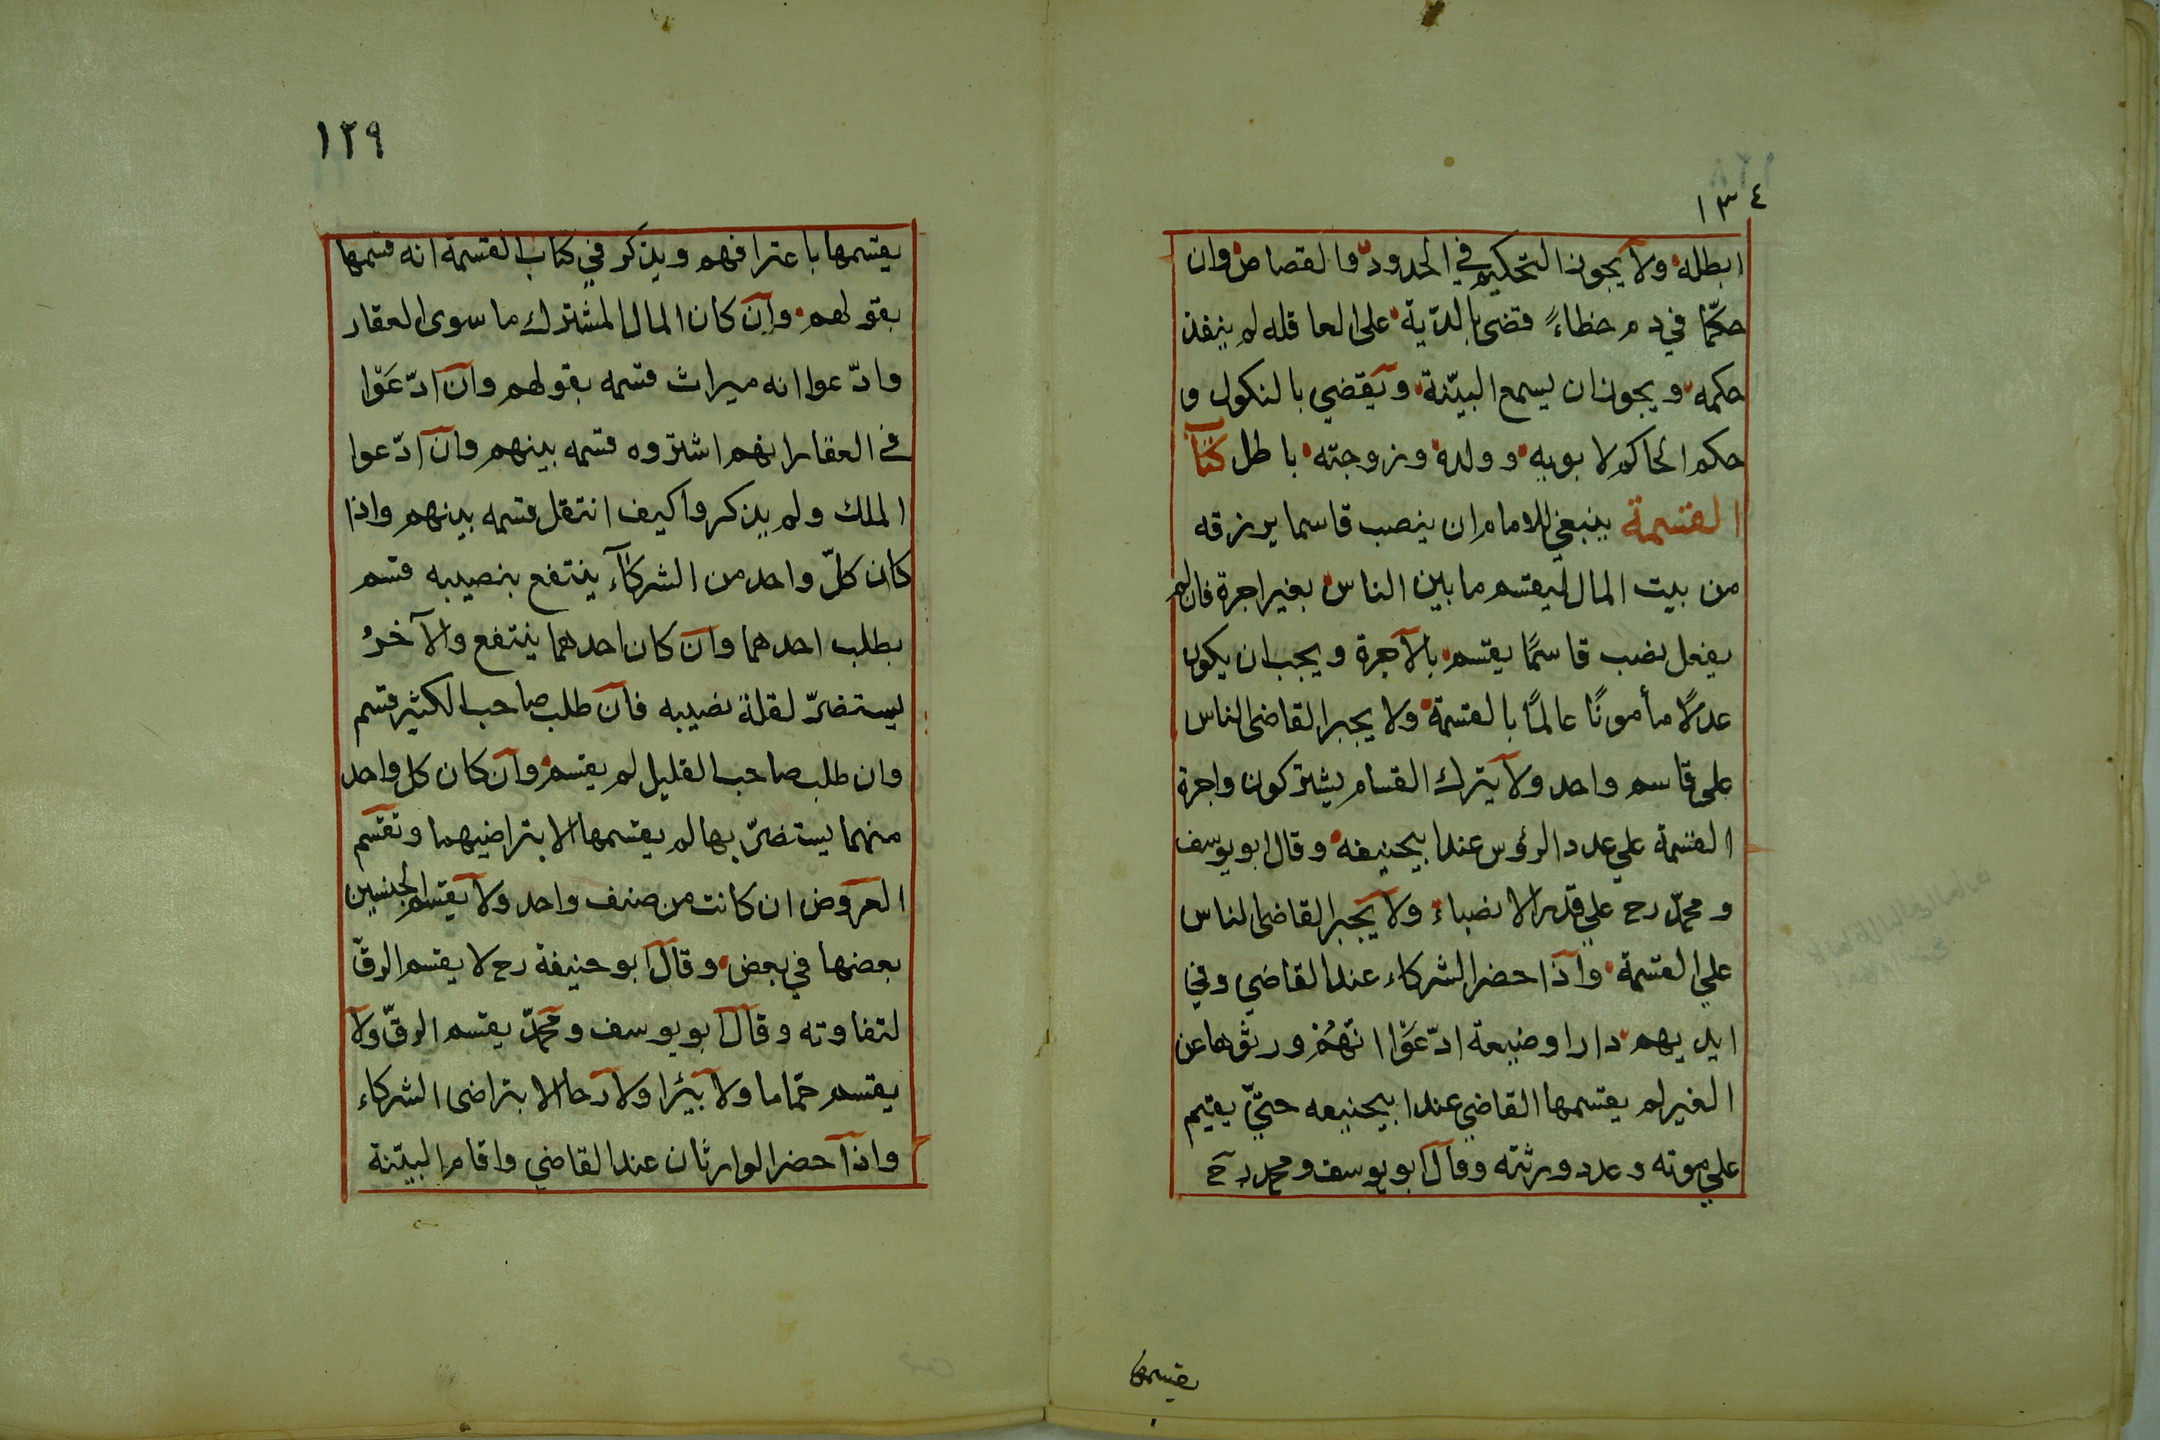 ١٣٤
ابطله ولا يجوز التحكيم في الحدود والقصاص وان
حكّما في دم خطاءً فقضى بالدّية على العاقله لم ينفذ
حكمه ويجوز ان يسمع البيّنة ويقضي بالنكول و
حكم الحاكم لابويه وولده وزوجته باطل كتاب
القسمة ينبغي للامام ان ينصب قاسما يرزقه
من بيت المال ليقسم ما بين الناس بغير اجرة فان لم
يفعل نصب قاسمًا يقسم بالآجرة ويجب ان يكون
عدلًا مأمونًا عالمًا بالقسمة ولا يجبر القاضى الناس
على قاسم واحد ولا يترك القسام يشتركون واجرة
القسمة علي عدد الرؤس عند ابيحنيفه وقال ابو يوسف
ومحمّد رح علي قدر الانصباء ولا يجبر القاضى الناس
علي القسمة واذا حضر الشركاء عند القاضي وفي
ايديهم دارا وضيعة ادّعَوْا انّهُمْ ورثوها عن
الغير لم يقسمها القاضي عند ابيحنيفه حتيّ يقيم
علي موته وعدد ورثته وقال ابو يوسف ومحمد رح
يقسمها
١٢٩
يقسمها باعترافهم ويذكر في كتاب القسمة انه قسمها
بقولهم وان كان المال المشترك ما سوى العقار
وادّعوا انه ميراث قسمه بقولهم وان ادّعَوْا
في العقار انهم اشتروه قسمه بينهم وان ادّعوا
الملك ولم يذكروا كيف انتقل قسمه بينهم واذا
كان كلّ واحد من الشركآء ينتفع بنصيبه قسم
بطلب احدهما وان كان احدهما ينتفع والآخرُ
يستضرّ لقلة نصيبه فان طلب صاحب الكثير قسم
وان طلب صاحب القليل لم يقسم وان كان كل واحد
منهما يستضرّ بها لم يقسمها الا بتراضيهما وتقسم
العروض ان كانت من صنف واحد ولا يقسم الجنسين
بعضها في بعض وقال ابو حنيفة رح لا يقسم الرقّ
لتفاوته وقال ابو يوسف ومحمّد يقسم الرقّ ولا
يقسم حمّاما ولا بئرا ولا رحا الا بتراضى الشركاء
واذا حضر الوارثان عند القاضي واقام البيّنة